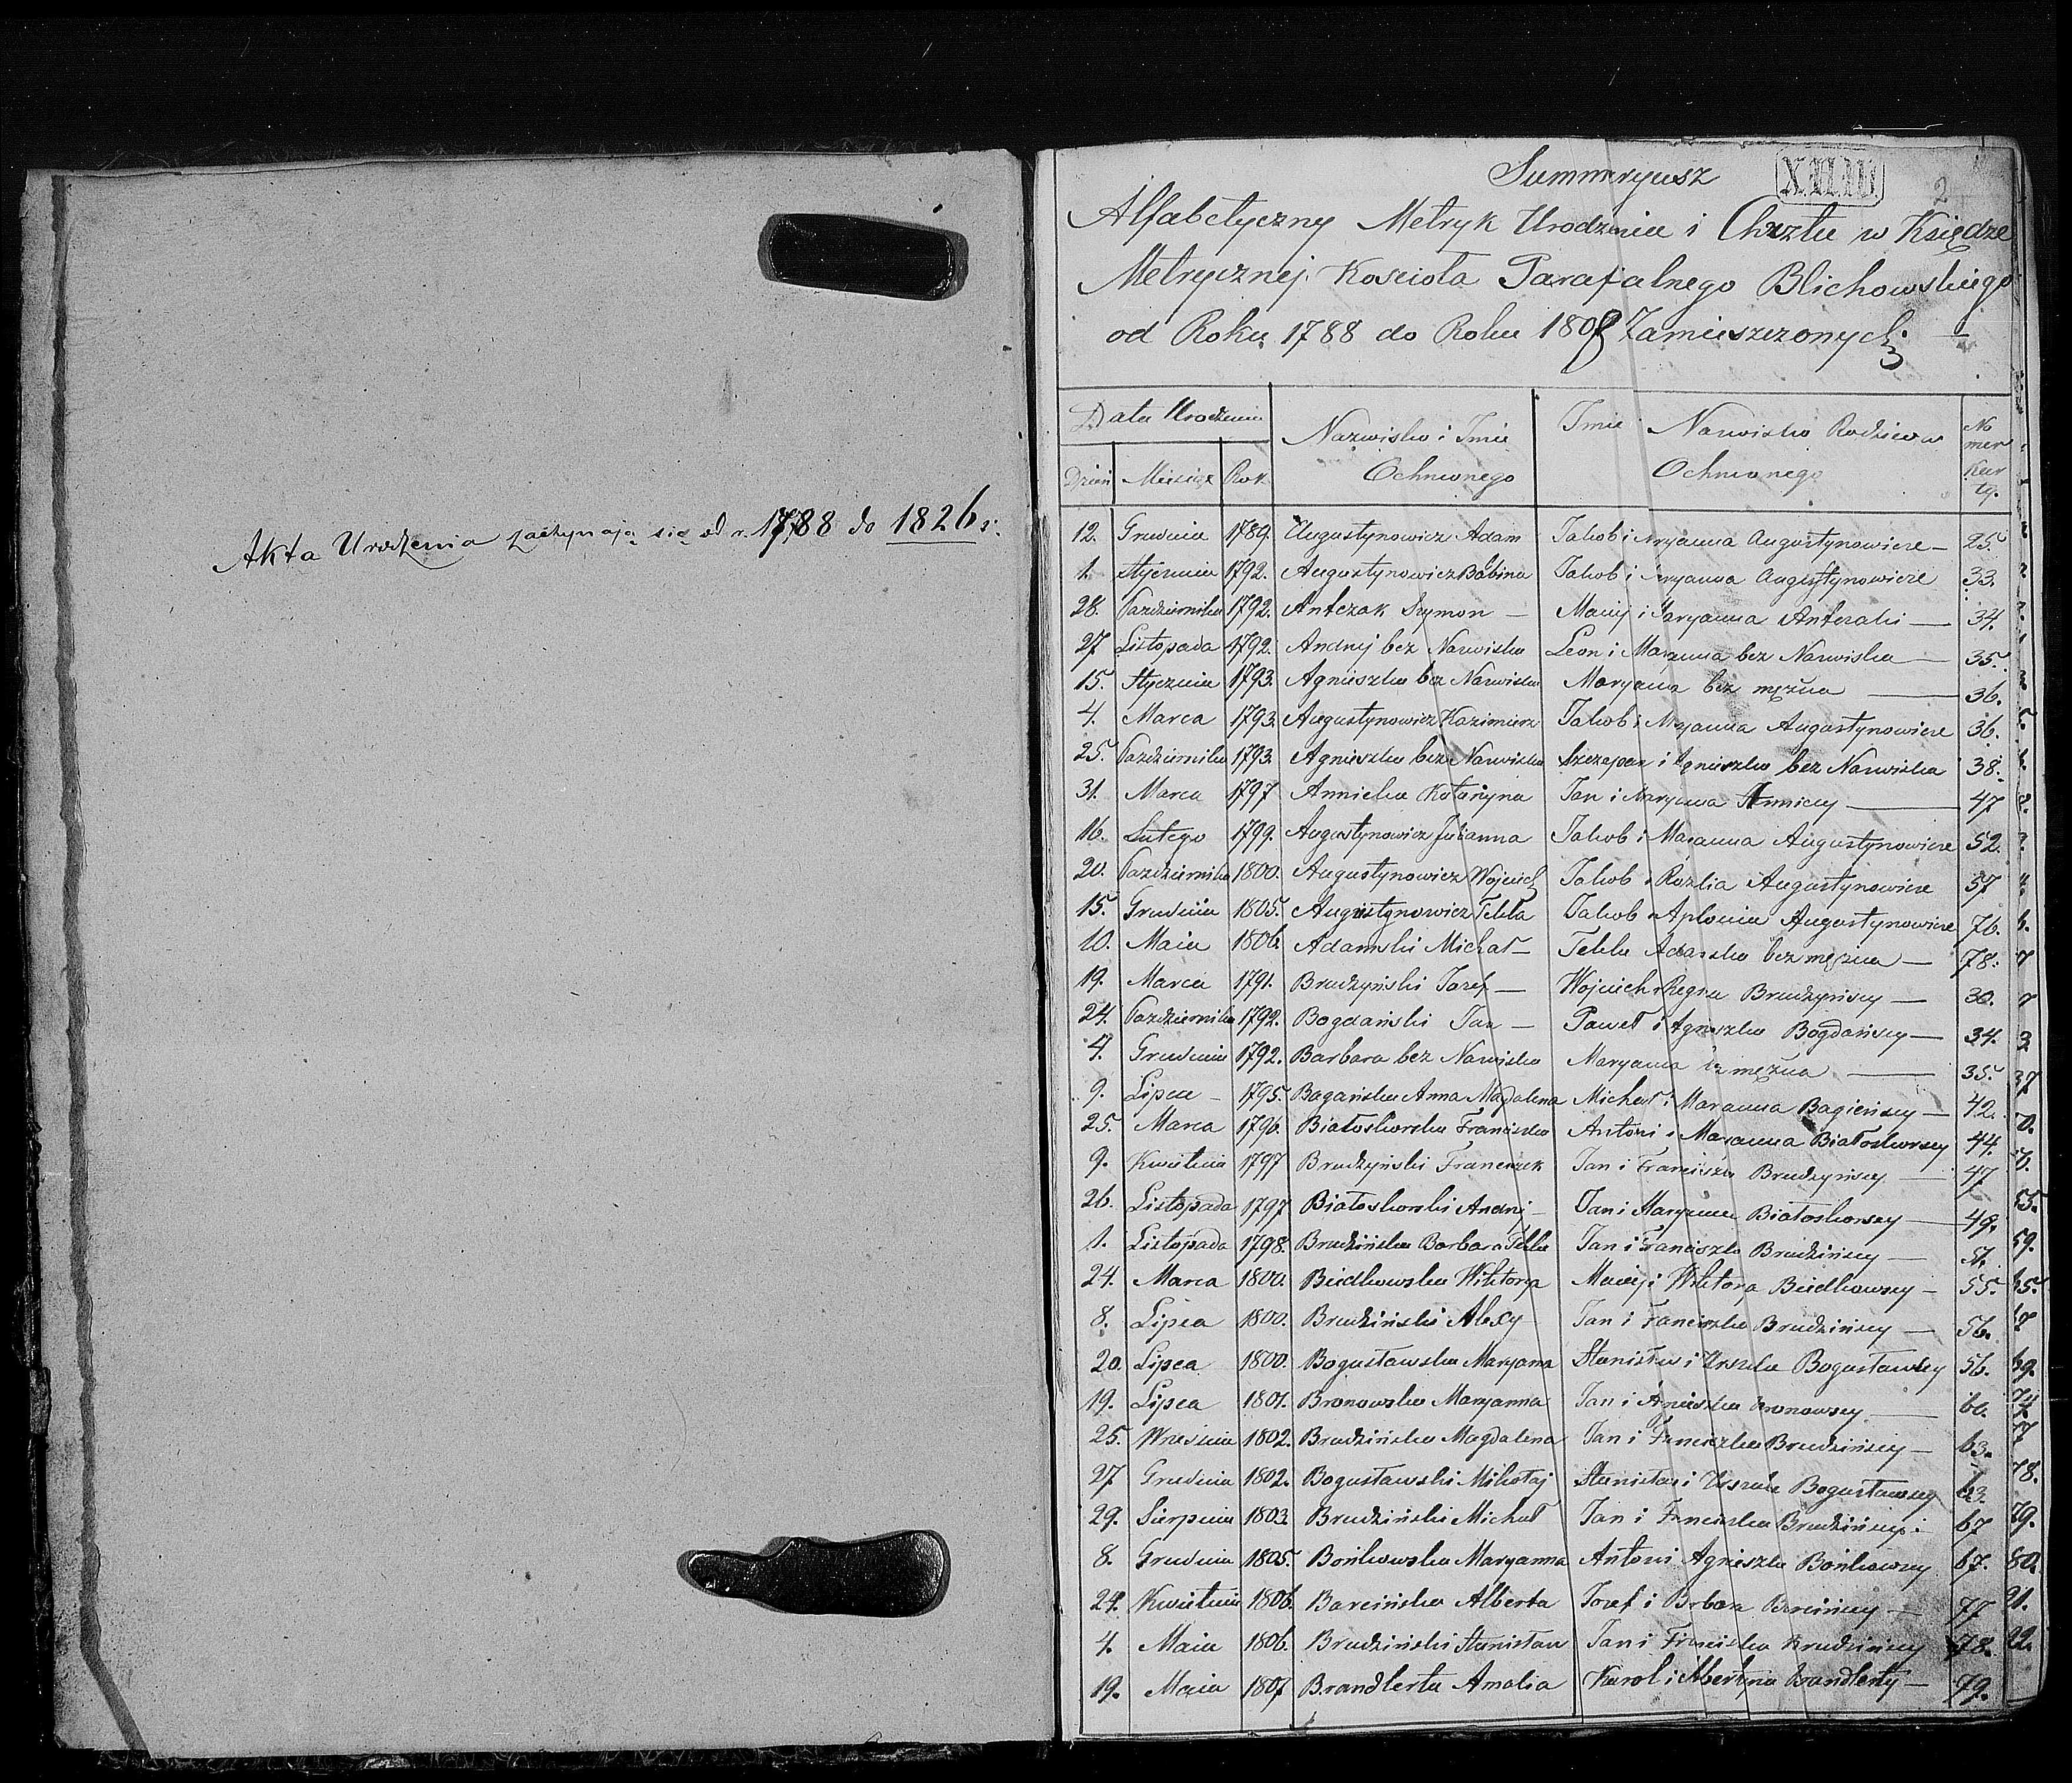 Akta Urodzenia zaczynają się od r. 1788 do 1826 r:
Summaryusz
2
Alfabetyczny Metryk Urodzenia i Chrztu w Księdze
Metrycznej Kościoła Parafalnego Blichowskiego
od Roku 1788 do Roku 1808 Zamieszczonych
Data Urodzenia
Nazwisko i Imie Ochrzconego
Imie Nazwisko Rodziców Ochrzconego
Numer Karty
Dzień Miesiąc Rok
12. Grudnia 1789. Augustynowicz Adam Jakob i Maryanna Augustynowicze 25.
1. Stycznia 1792. Augustynowicz Jakob i Maryanna Augustynowicze 33.
28. Października 1792. Antczak Szymon Maciej i Maryanna Antczaki 34.
27 Listopada 1792. Andrzej bez Nazwiska Leon i Maryanna bez Nazwiska 35.
15. Stycznia 1793. Agnieszka bez Nazwiska Maryanna bez mężna 36.
4. Marca 1793. Augustynowicz Kazimierz Jakob i Maryanna Augustynowicze 36.
25. Października 1793. Agnieszka bez Nazwiska Szczepan i Agnieszka bez Nazwiska 38.
31. Marca 1797 Katarzyna Jan i Maryanna 47
16. Lutego 1799. Augustynowicz Julianna Jakob i Maranna Augustynowicze 52.
20. Października 1800. Augustynowicz Wojciech Jakob i Rozalia Augustynowicze 57
15. Grudnia 1805. Augustynowicz Tekla Jakob i Aplonia Augustynowicze 76.
10. Maia 1806. Adamski Michał Tekla bez mężna 78.
19. Marca 1791. Brudzyński Jozef Wojciech i Regina Brudzyńscy 30.
24. Października 1792. Bogdański Jan Paweł i Agnieszka Bogdańscy 34.
4. Grudnia 1792. Barbara bez Nazwiska Maryanna bez mężna 35.
9. Lipca 1795. Bagańska Anna Magdalena Michał i Maranna Bagieńscy 42.
25. Marca 1796. Białoskorska Franciszka Antoni i Maranna Białoskorscy 44.
9. Kwietnia 1797 Brudzyński Franciszek Jan i Franciszka Brudzyńscy 47
26. Listopada 1797 Białoskorski Andrzej Jan i Maryanna Białoskorscy 49.
1. Listopada 1798. Brudzińska Barbara Tekla Jan i Franciszka Brudzińscy 51.
24. Marca 1800. Biedkowska Wiktorya Maciej i Wiktorya Biedkowscy 55.
8. Lipca 1800. Brudziński Alexy Jan i Franciszka Brudzińscy 56.
20. Lipca 1800. Bogusławska Maryanna Stanisław i Urszula Bogusławscy 56.
19. Lipca 1801. Bronowska Maryanna Jan i Bronowscy 60.
25. Września 1802. Brudzińska Magdalena Jan i Franciszka Brudzińscy 63.
27 Grudnia 1802. Bogusławski Mikołaj Stanisław i Urszula Bogusławscy 63.
29. Sierpnia 1803. Brudziński Michał Jan i Franciszka Brudzińscy 67
8. Grudnia 1805. Bońkowska Maryanna Antoni Agnieszka Bońkowscy 67.
24. Kwietnia 1806. Barcińska Alberta Jozef i Barbara Barcińscy 77
4. Maia 1806. Brudziński Stanisław Jan i Franciszka Brudzińscy 78.
19. Maia 1807 Brandlerta Amalia Karol i Albertyna Brandlerty 79.